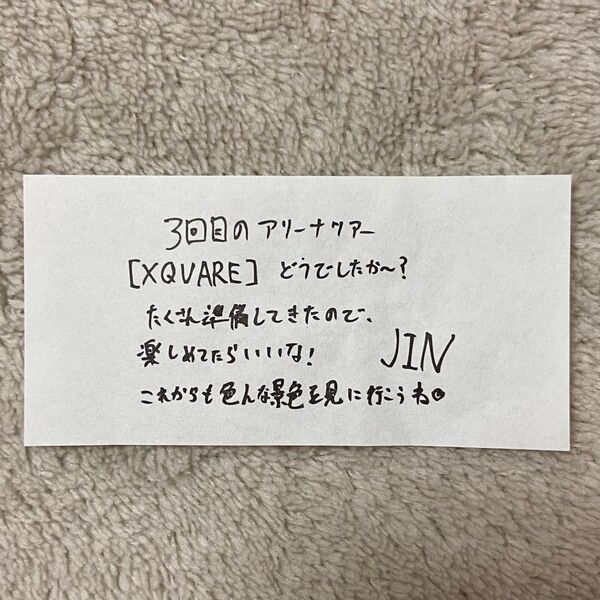 3回目のアリーナツアー
[XQVARE] どうでしたか〜?
たくさん準備してきたので、
楽しめてたらいいな!
JIN
これからも色んな景色を見に行こうね。